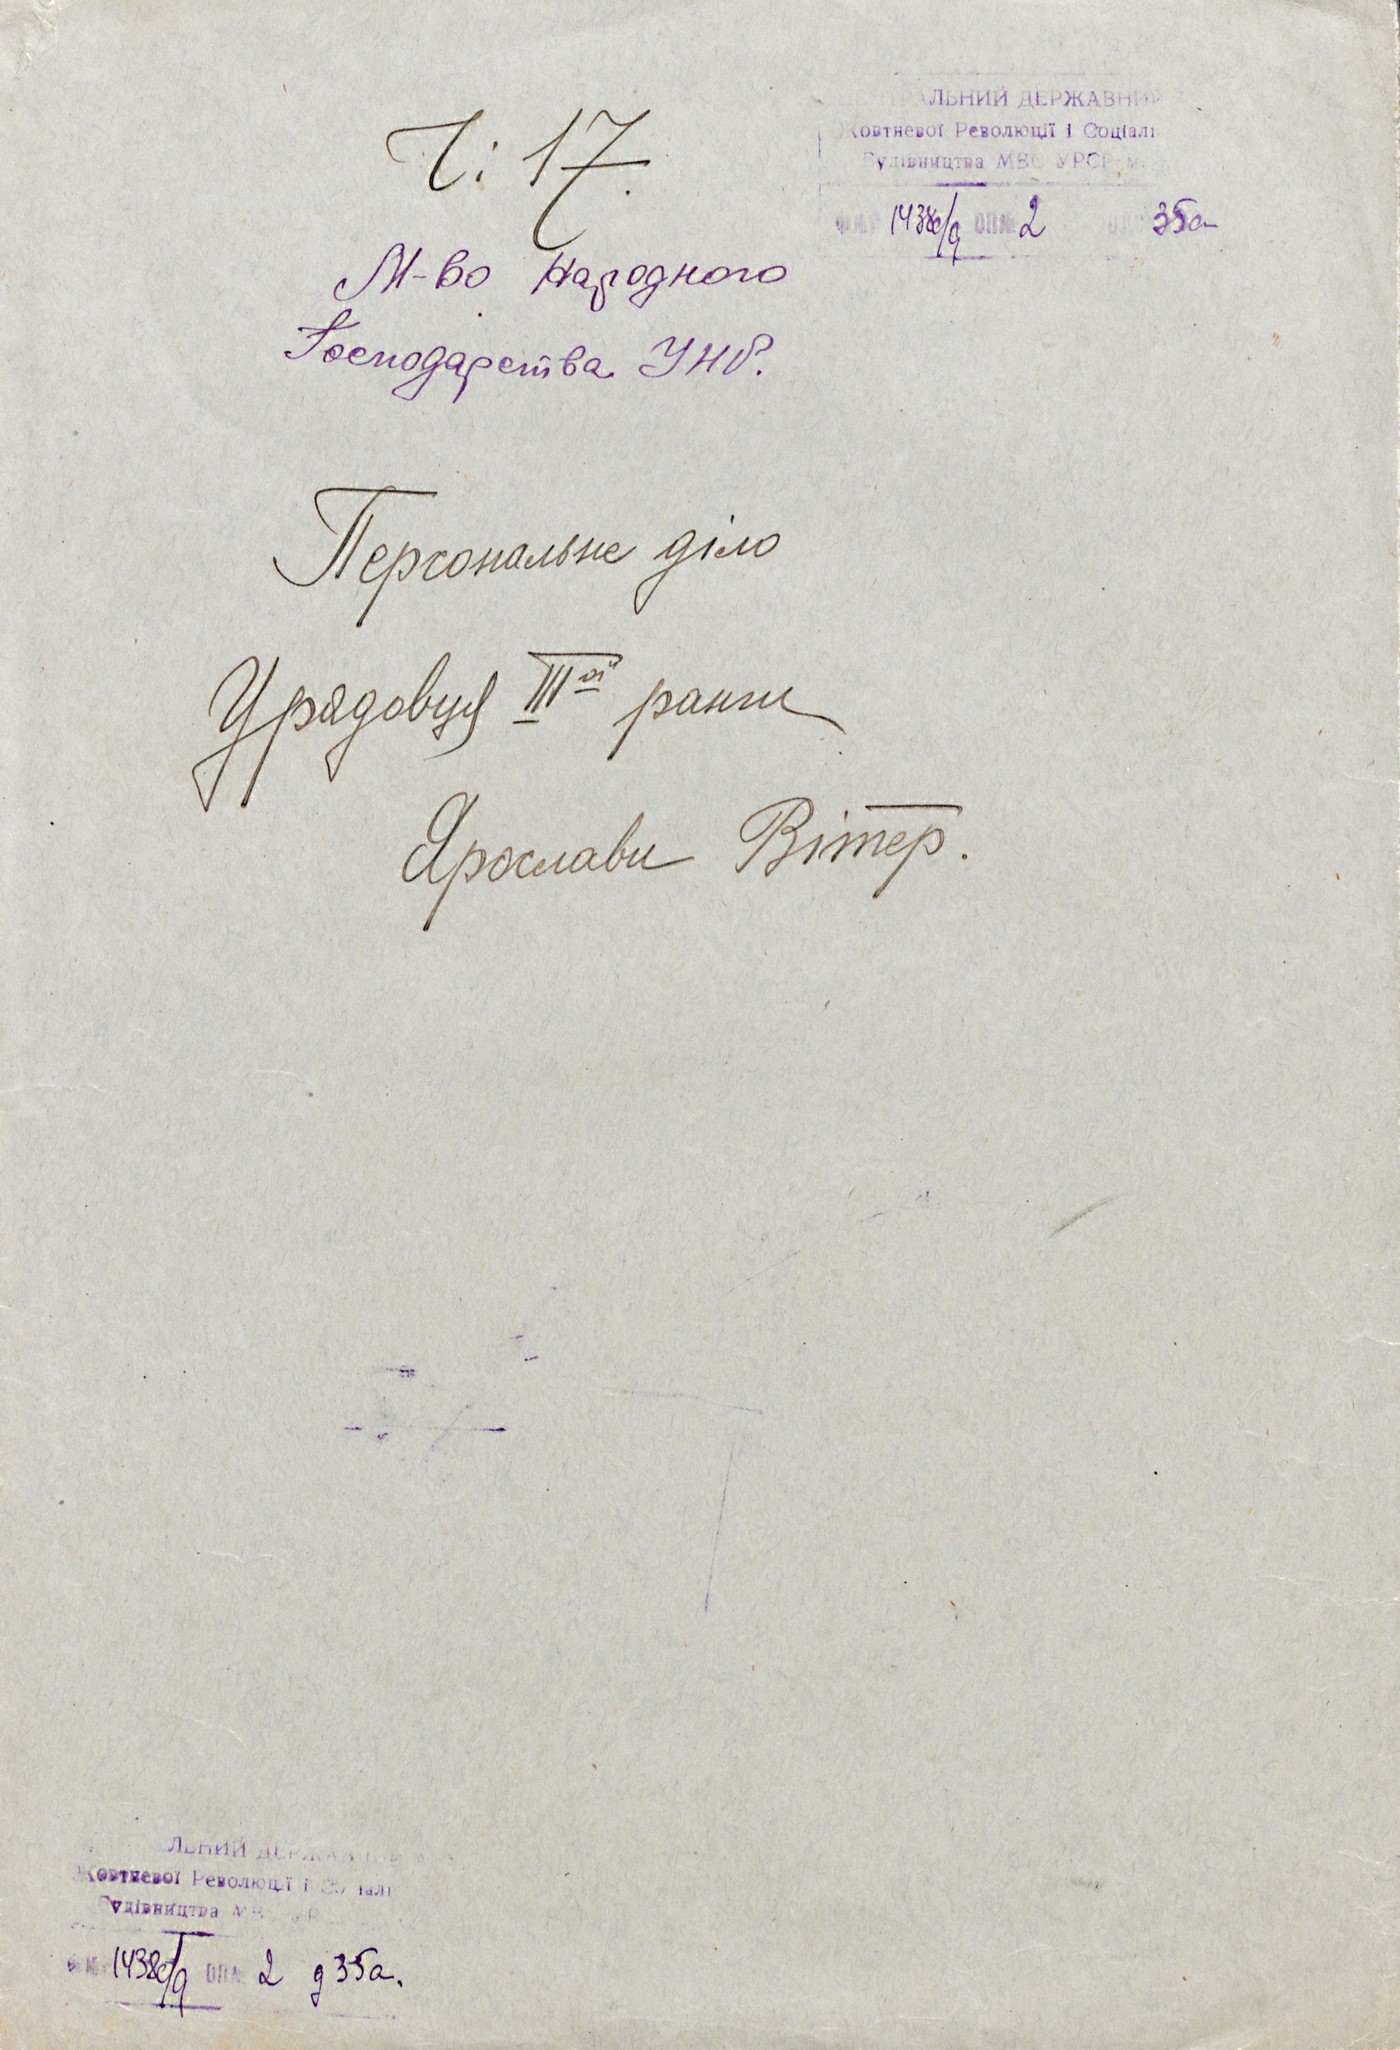 Ч: 17.
ЛЬНИЙ ДЕРЖАВНИЙ
Жовтневої Революції і Соціалі
Будівництва МВС УРСР м.
1438с/9 ОП.№ 2 35а
М-во Народного
Господарства УНР.
Персональне діло
Урядовця III-ої ранги
Ярослави Вітер.
ЛЬНИЙ ДЕРЖАВНИЙ
Жовтневої Революції і Соціалі
Будівництва
1438с/9 ОП.№ 2 д 35а.